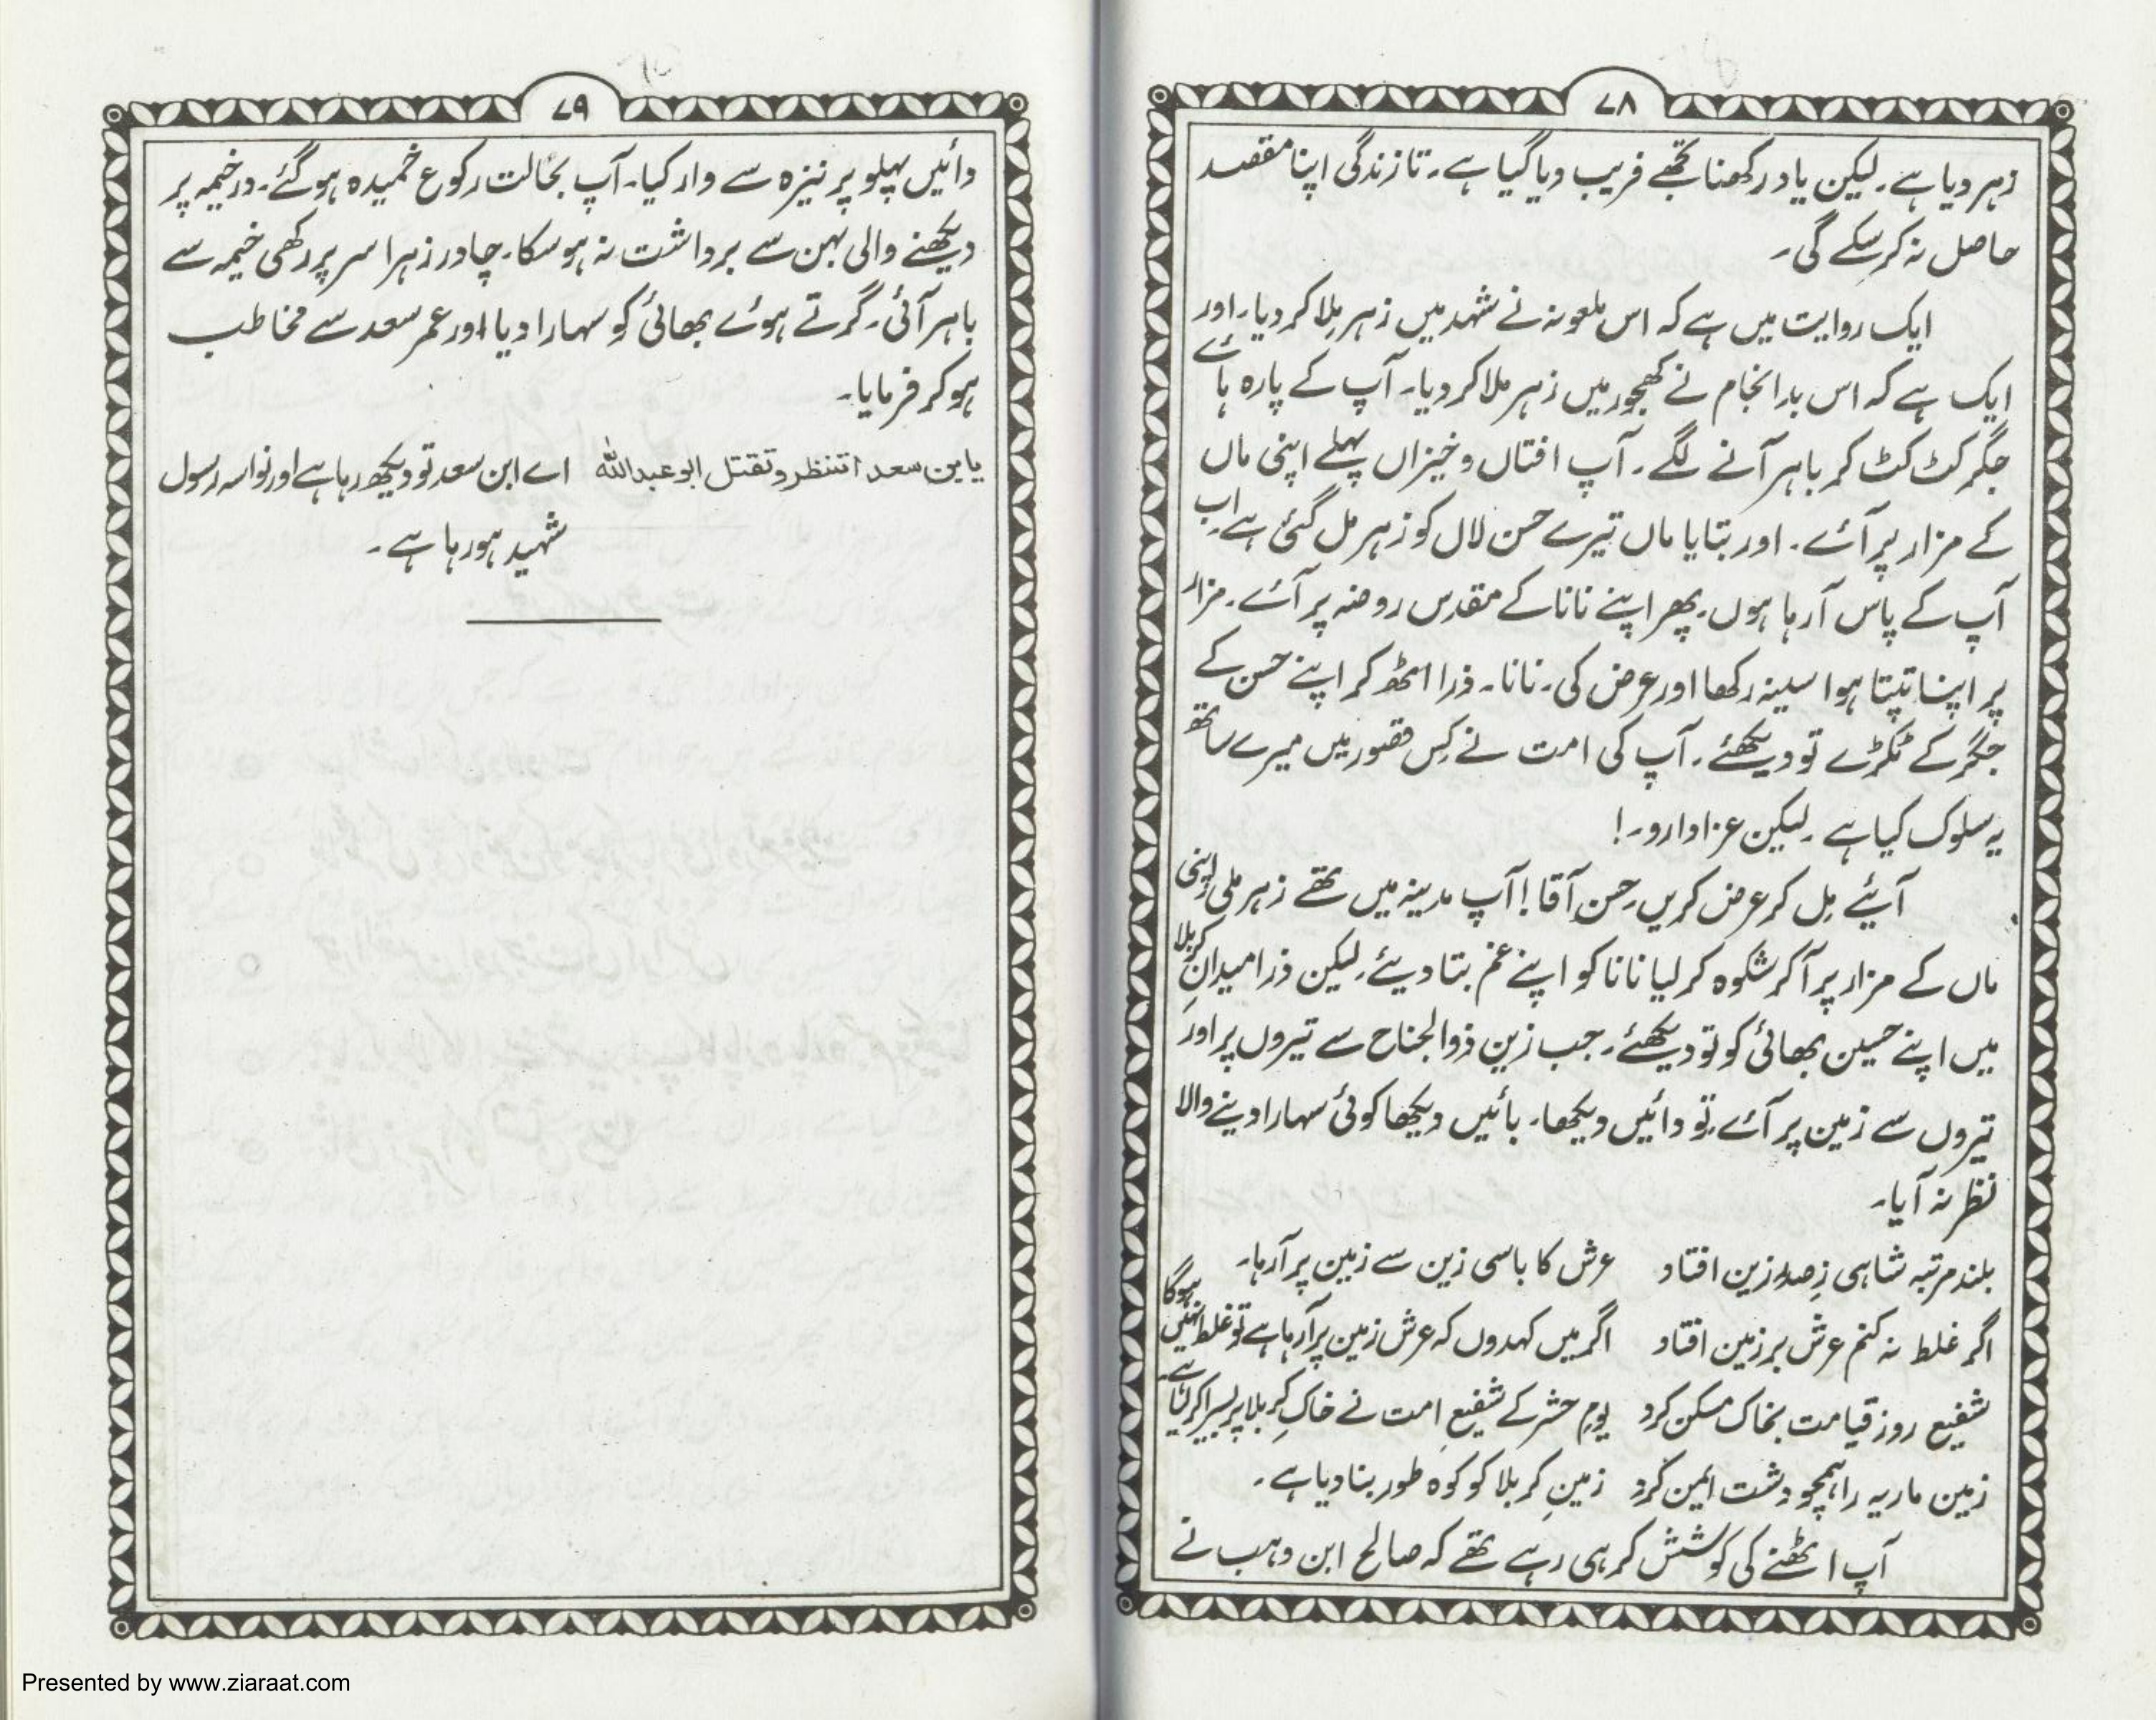 ۷۸
زہر دیا ہے۔ لیکن یاد رکھنا تجھے فریب دیا گیا ہے۔ تا زندگی اپنا مقصد
حاصل نہ کر سکے گی۔
ایک روایت میں ہے کہ اس ملعونہ نے شہد میں زہر ملا کر دیا۔ اور
ایک ہے کہ اس بد انجام نے کھجور میں زہر ملا کر دیا۔ آپ کے پارہ ہائے
جگر کٹ کٹ کر باہر آنے لگے۔ آپ افتاں و خیزاں پہلے اپنی ماں
کے مزار پر آئے۔ اور بتایا ماں تیرے حسن لال کو زہر مل گئی ہے۔ اب
آپ کے پاس آ رہا ہوں۔ پھر اپنے نانا کے مقدس روضہ پر آئے۔ مزار
پر اپنا تپتا ہوا سینہ رکھا اور عرض کی۔ نانا۔ ذرا اٹھ کر اپنے حسن کے
جگر کے ٹکڑے تو دیکھئے۔ آپ کی امت نے کس قصور میں میرے ساتھ
یہ سلوک کیا ہے۔ لیکن عزادارو۔!
آیئے مل کر عرض کریں۔ حسن آقا! آپ مدینہ میں تھے زہر ملی اپنی
ماں کے مزار پر آ کر شکوہ کر لیا نانا کو اپنے غم بتا دیئے۔ لیکن ذرا میدانِ کربلا
میں اپنے حسین بھائی کو تو دیکھئے۔ جب زین ذوالجناح سے تیروں پر اور
تیروں سے زمین پر آئے۔ تو دائیں دیکھا۔ بائیں دیکھا کوئی سہارا دینے والا
نظر نہ آیا۔
بلند مرتبہ شاہی زِصدر زین افتاد عرش کا باسی زین سے زمین پر آ رہا۔
اگر غلط نہ کنم عرش بر زمین افتاد اگر میں کہدوں کہ عرش زمین پر آ رہا ہے تو غلط نہیں ہوگا
شفیع روز قیامت بخاک مسکن کرد یومِ حشر کے شفیعِ امت نے خاکِ کربلا پر بسیرا کر لیا ہے۔
زمین ماریہ را ہمچو دشت ایمن کرد زمینِ کربلا کو کوہ طور بنا دیا ہے۔
آپ اٹھنے کی کوشش کر ہی رہے تھے کہ صالح ابن وہب نے
۷۹
دائیں پہلو پر نیزہ سے وار کیا۔ آپ بحالت رکوع خمیدہ ہو گئے۔ در خیمہ پر
دیکھنے والی بہن سے برداشت نہ ہو سکا۔ چادر زہرا سر پر رکھی خیمہ سے
باہر آئی۔ گرتے ہوئے بھائی کو سہارا دیا اور عمر سعد سے مخاطب
ہو کر فرمایا۔
یابن سعد اتنظر وتقتل ابو عبداللہ اے ابن سعد تو دیکھ رہا ہے اور نواسہ رسول
شہید ہو رہا ہے۔
Presented by www.ziaraat.com